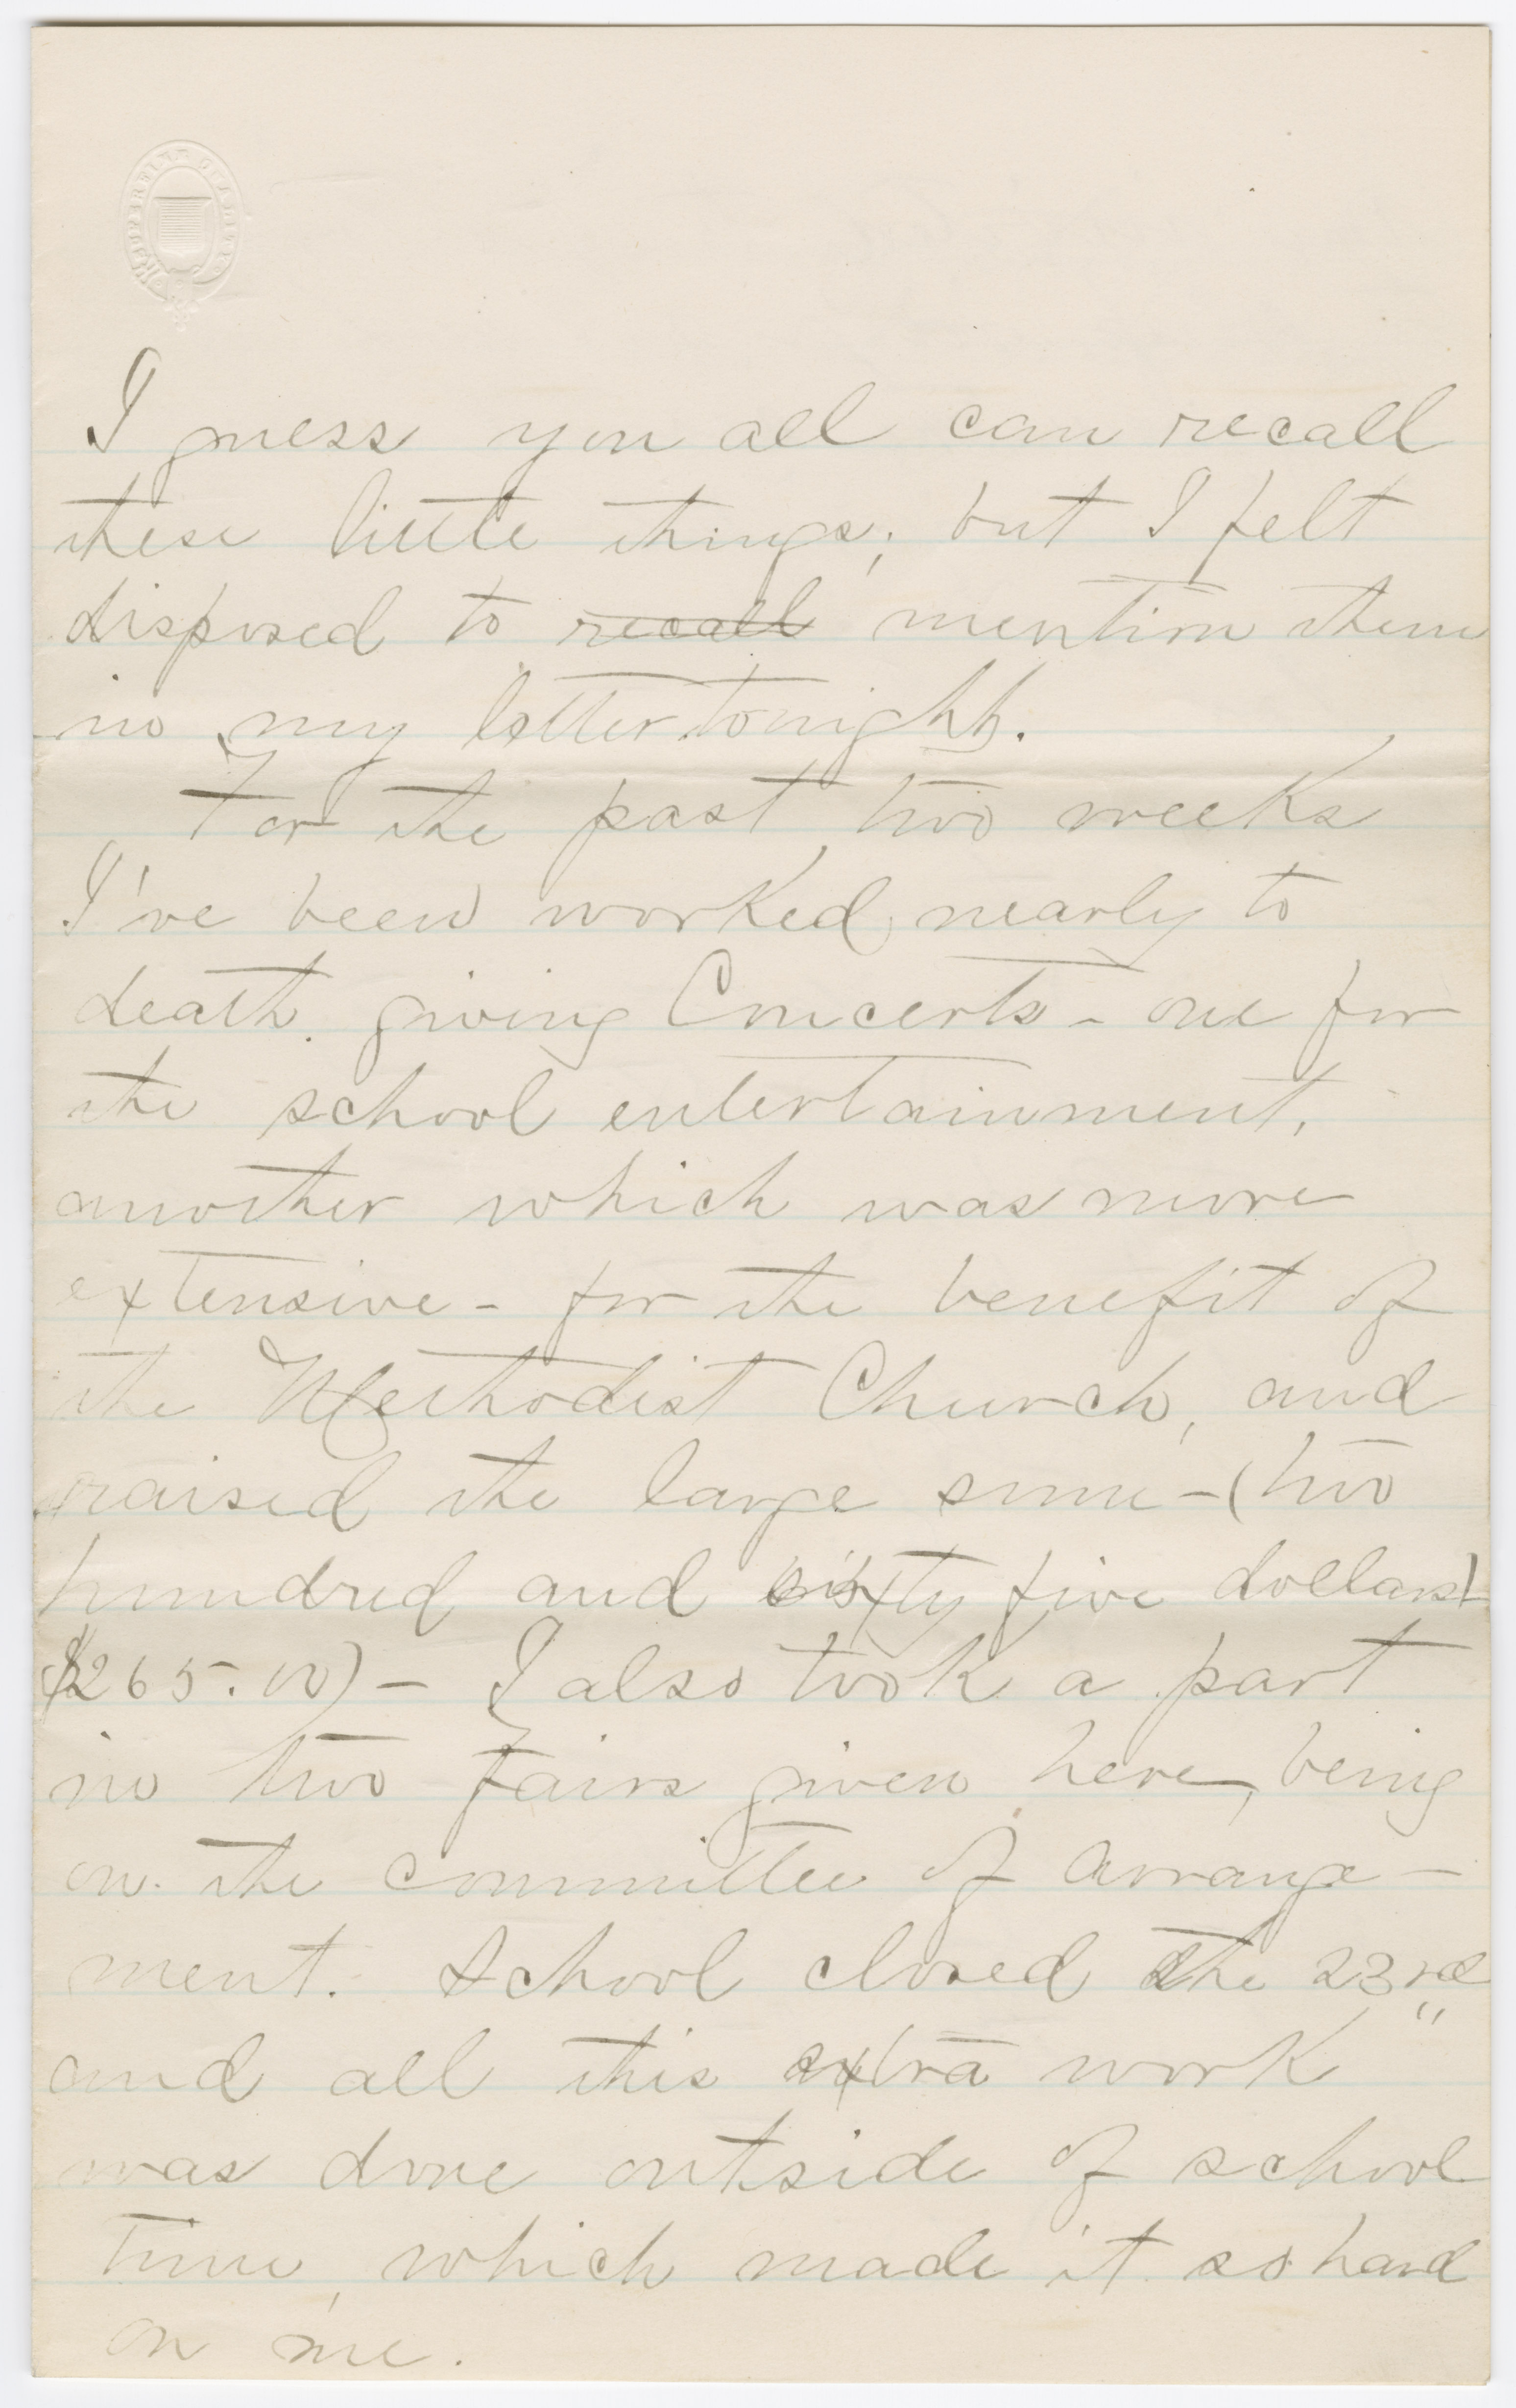 I guess you all can recall
these little things; but I felt
disposed to ~~recall~~ mention them
in my letter tonight.
For the past two weeks
I've been worked nearly to
death giving Concerts - one for
the school entertainment,
another which was more
extensive - for the benefit of
the Methodist Church, and
raised the large sum - (two
hundred and sixty five dollars)
($265.00) - I also took a part
in two Fairs given here, being
on the committee of arrange-
ment. School closed the 23rd
and all this extra work
was done outside of school
time, which made it so hard
on me.